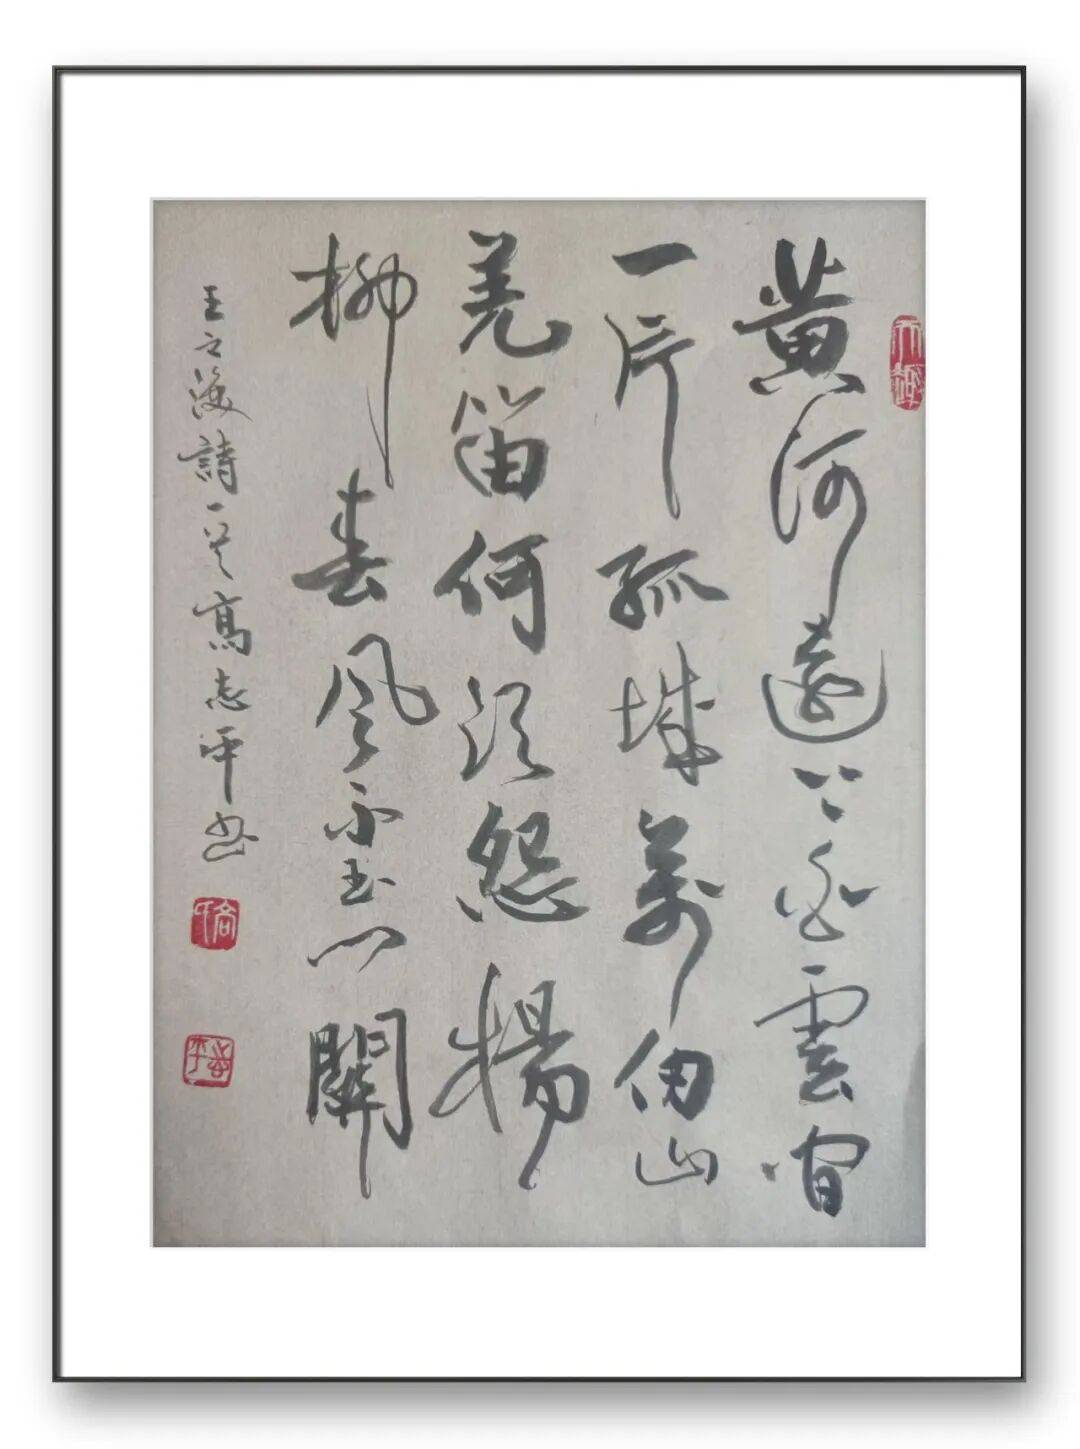 黄河遠上白雲間
一片孤城萬仞山
羌笛何須怨楊
柳春風不玉門關
王之渙詩一首高志平书
高氏
志平